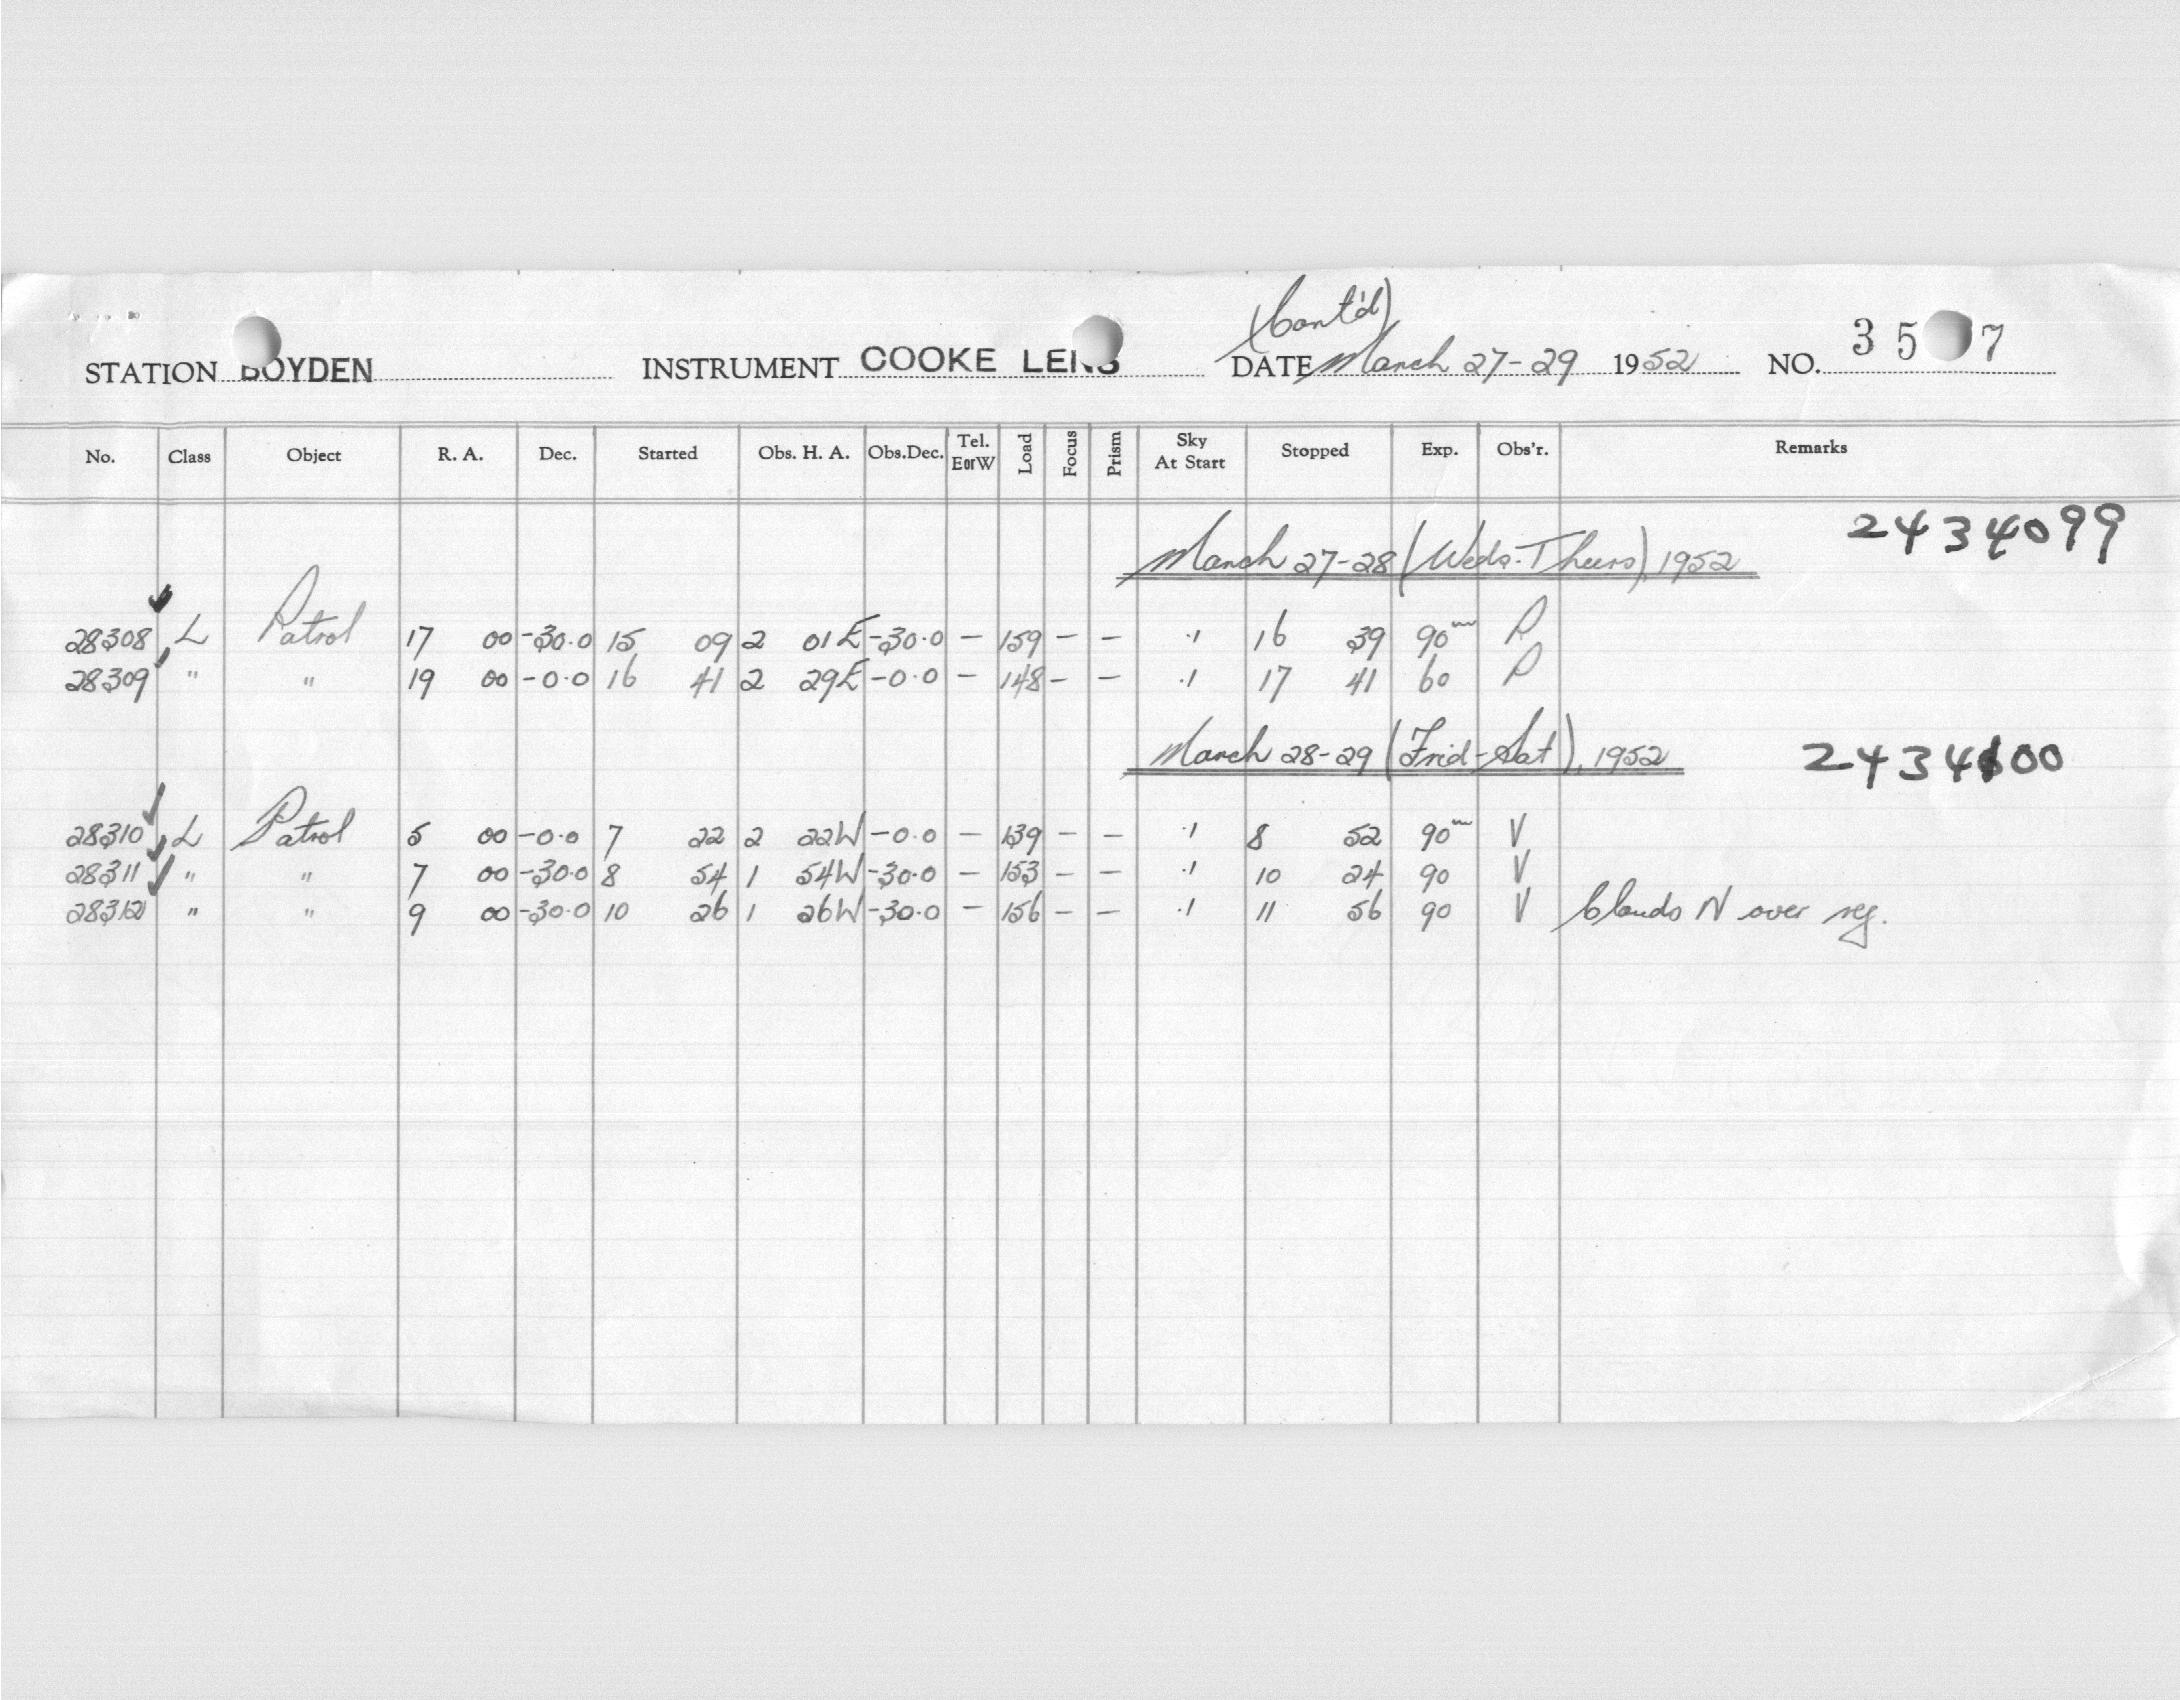 (Cont'd)
STATION BOYDEN INSTRUMENT COOKE LENS DATE March 27-29 1952 NO. 35 7
No. Class Object R. A. Dec. Started Obs. H. A. Obs.Dec. Tel. EorW Load Focus Prism Sky At Start Stopped Exp. Obs'r. Remarks
March 27-28 (Weds-Thurs), 1952 2434099
28308 L Patrol 17 00 -30.0 15 09 2 01E -30.0 - 159 - - .1 16 39 90m P
28309 " " 19 00 -0.0 16 41 2 29E -0.0 - 148 - - .1 17 41 60 P
March 28-29 (Frid-Sat), 1952 2434100
28310 L Patrol 5 00 -0.0 7 22 2 22W -0.0 - 139 - - .1 8 52 90m V
28311 " " 7 00 -30.0 8 54 1 54W -30.0 - 153 - - .1 10 24 90 V
28312 " " 9 00 -30.0 10 26 1 26W -30.0 - 156 - - .1 11 56 90 V Clouds N over reg.